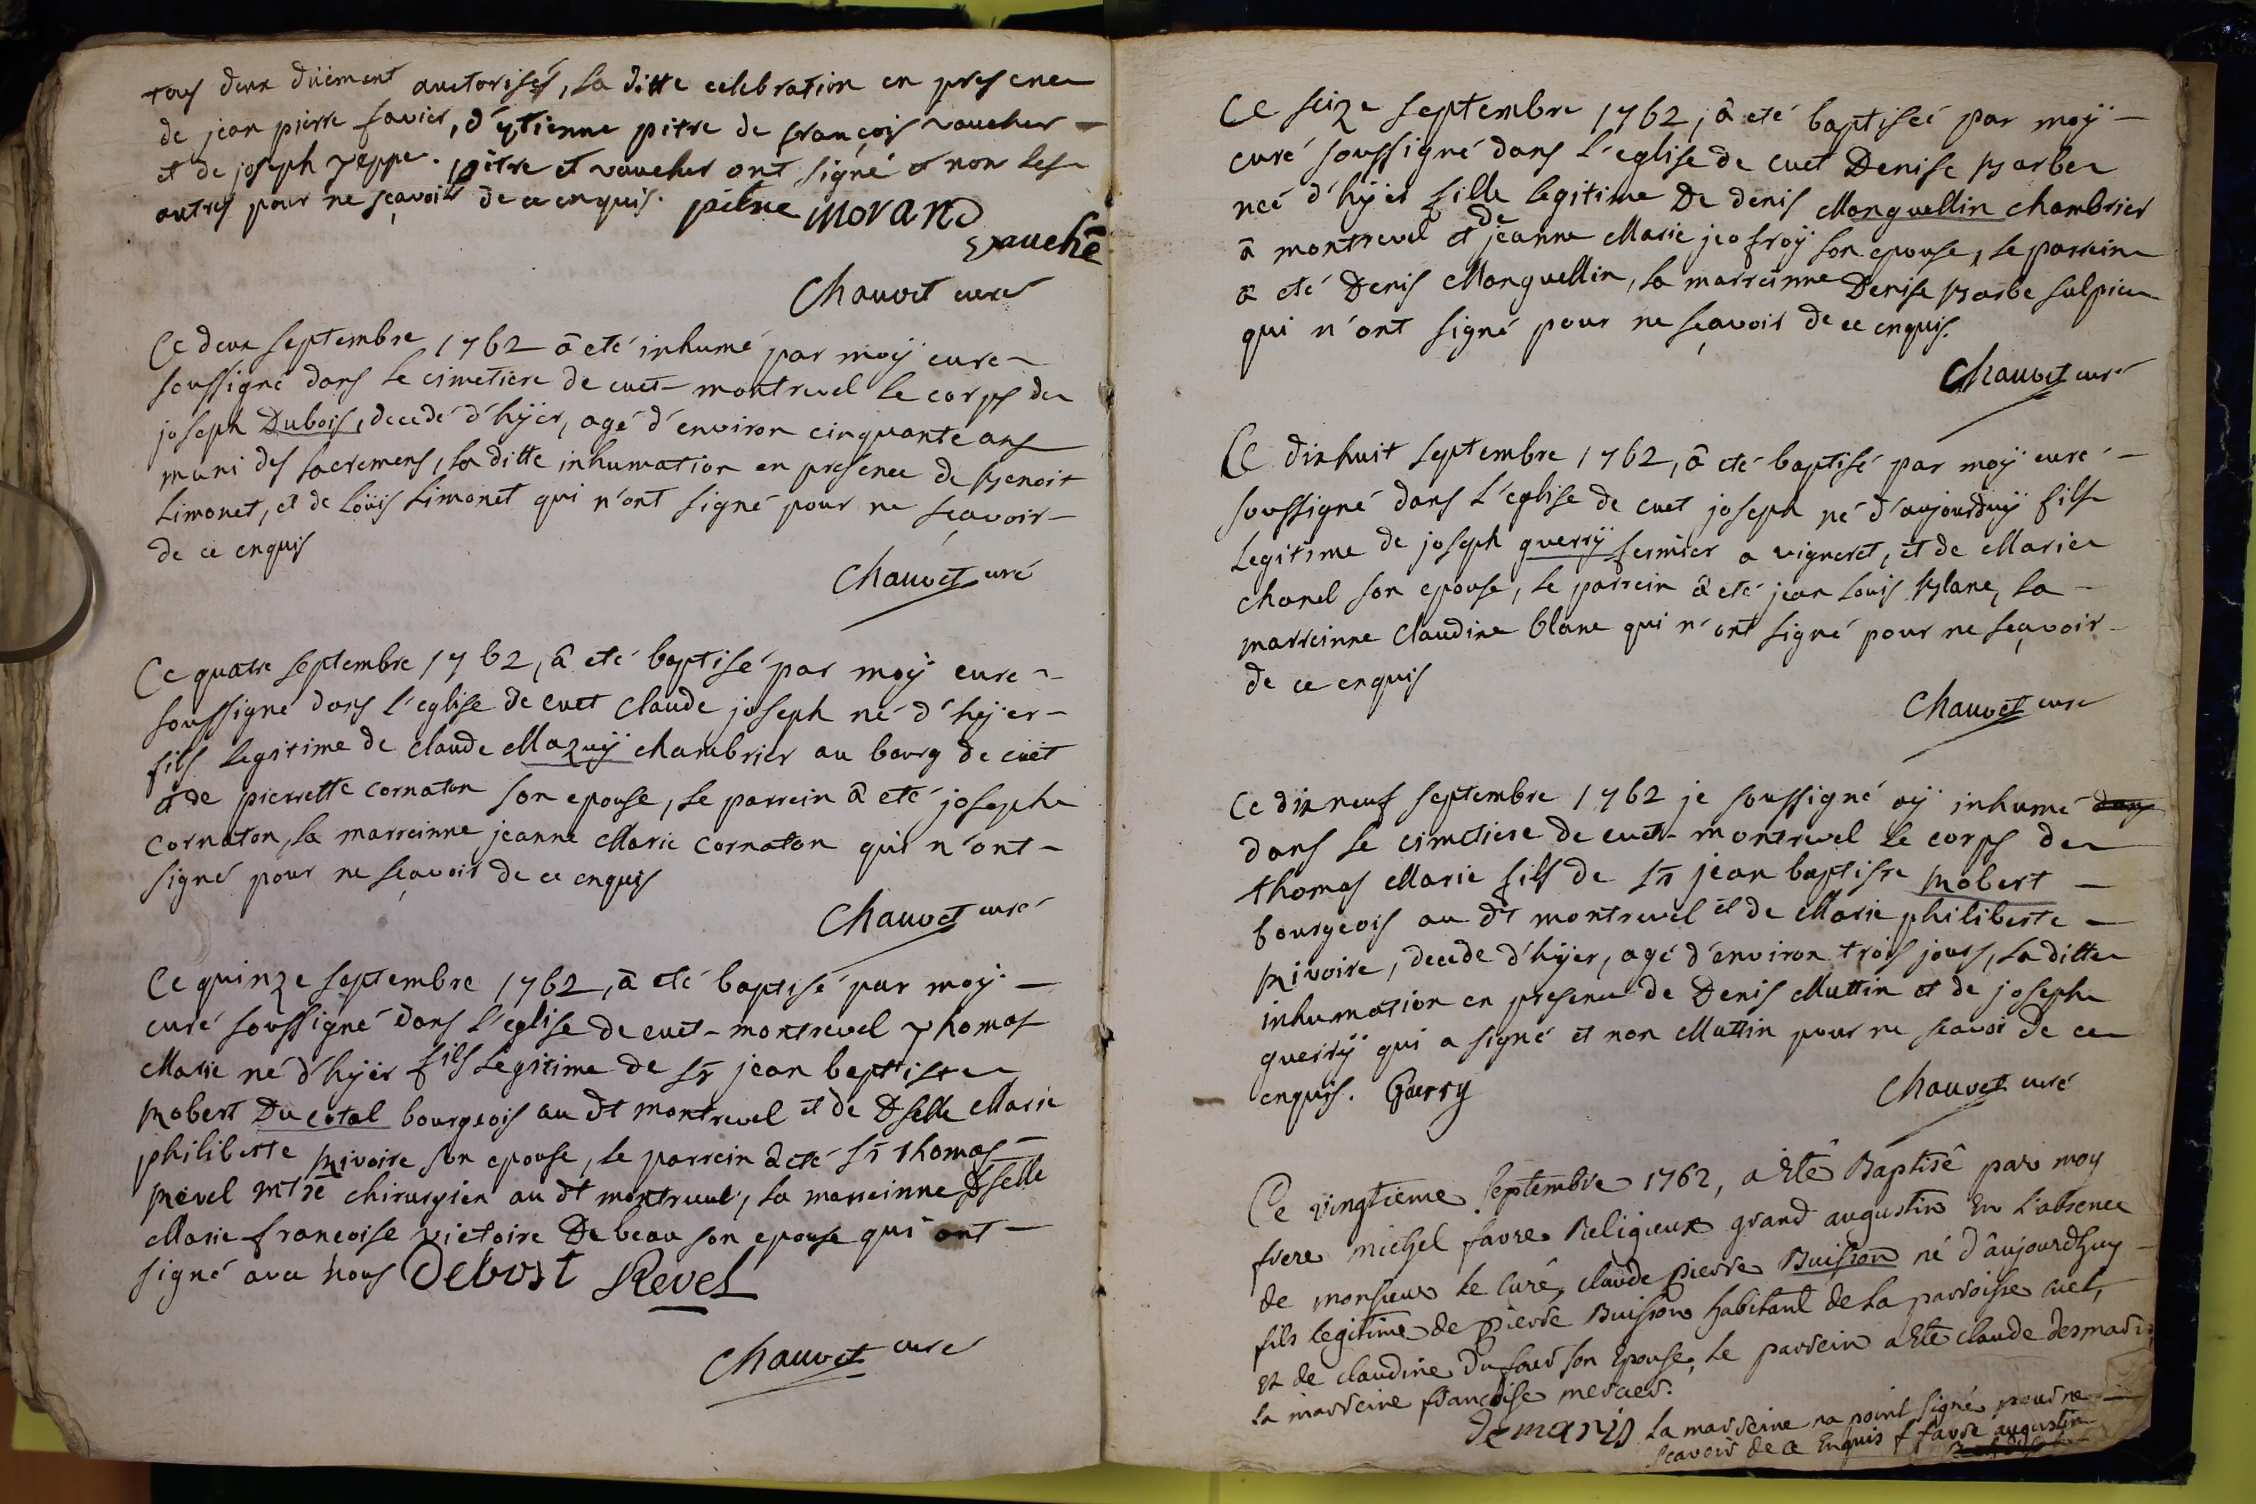 tous deux düement auctorisés, la ditte celebration en presence
de jean pierre favier, d'etienne pitre de françois vaucher
et de joseph yeppe. pitre et vaucher ont signé et non les
autres pour ne sçavoir de ce enquis. pitre Morand
vauché
Chauvet curé
Ce deux septembre 1762 â eté inhumé par moÿ curé
soussigné dans le cimetiere de cuet-montrevel le corps de
joseph Dubois, decedé d'hÿer, agé d'environ cinquante ans
muni des sacremens, la ditte inhumation en presence de Benoit
Limonet, et de Loüis Limonet qui n'ont signé pour ne sçavoir
de ce enquis
Chauvet curé
Ce quatre septembre 1762, â eté baptisé par moÿ curé
soussigné dans l'eglise de cuet Claude joseph né d'hÿer
fils legitime de claude Mazuÿ chambrier au bourg de cuet
et de pierrette cornaton son epouse, le parrein â eté joseph
cornaton, la marreinne jeanne Marie cornaton qui n'ont
signé pour ne sçavoir de ce enquis
Chauvet curé
Ce quinze septembre 1762, â eté baptisé par moÿ
curé soussigné dans l'eglise de cuet-montrevel Thomas
Marie né d'hÿer fils legitime de Sr jean baptiste
Robert Ducotal bourgeois au dt montrevel et de Dselle Marie
philiberte Rivoire son epouse, le parrein â eté Sr thomas
Revel mtre chirurgien au dt montrevel, la marreinne Dselle
Marie françoise victoire De beau son epouse qui ont
signé avec nous Debost Revel
Chauvet curé
Ce seize septembre 1762, â eté baptiseé par moÿ
curé soussigné dans l'eglise de cuet Denise Barbe
neé d'hÿer fille legitime De denis Monguellin chambrier
à montrevel et de jeanne Marie jeofroÿ son epouse, le parrein
a eté Denis Monguellin, la marreinne Denise Barbe sulpice
qui n'ont signé pour ne sçavoir de ce enquis.
Chauvet curé
Ce dixhuit septembre 1762, â eté baptisé par moÿ curé
soussigné dans l'eglise de cuet joseph né d'aujourduÿ fils
Legitime de joseph guerrÿ fermier a vigneret, et de Marie
chanel son epouse, le parrein â eté jean Louis Blanc, la
marreinne Claudine blanc qui n'ont signé pour ne sçavoir
de ce enquis
Chauvet curé
Ce dix neuf septembre 1762 je soussigné aÿ inhumé dans
dans le cimetiere de cuet-montrevel le corps de
thomas Marie fils de Sr jean baptiste Robert
bourgeois au dt montrevel et de Marie philiberte
Rivoire, decedé d'hÿer, agé d'environ trois jours, la ditte
inhumation en presence de Denis Muttin et de joseph
guerrÿ qui a signé et non Muttin pour ne scavoi de ce
enquis. Guerry
Chauvet curé
Ce vingtieme septembre 1762, a Eté Baptisé par moy
frere michel favre Religieux grand augustin En l'absence
de monsieur le Curé, claude pierre Buisson né d'aujourdhuy
fils legitime de pierre Buisson habitant de la parroisse cuet,
Et de claudine Dufour son Epouse, le parrein a Eté claude desmaris
la marreine françoise mercier.
Demaris la marreine na point signé pour ne
scavoir de ce Enquis f favre augustin